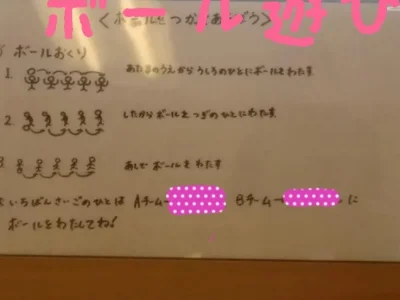 ボール遊び
〈ボールをつかってあそぼう〉
ボールおくり
1. あたまのうえから うしろのひとにボールをわたす
2. したからボールを つぎのひとにわたす
3 あしで ボールを わたす
いちばんさいごのひとは Aチーム→ Bチーム→ に
ボールをわたしてね!